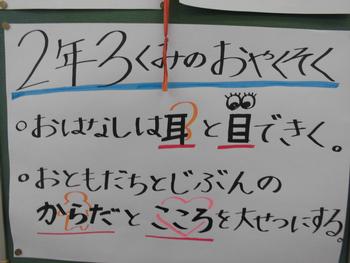 2年3くみのおやくそく
。おはなしは耳と目できく。
。おともだちとじぶんの
からだとこころを大せつにする。